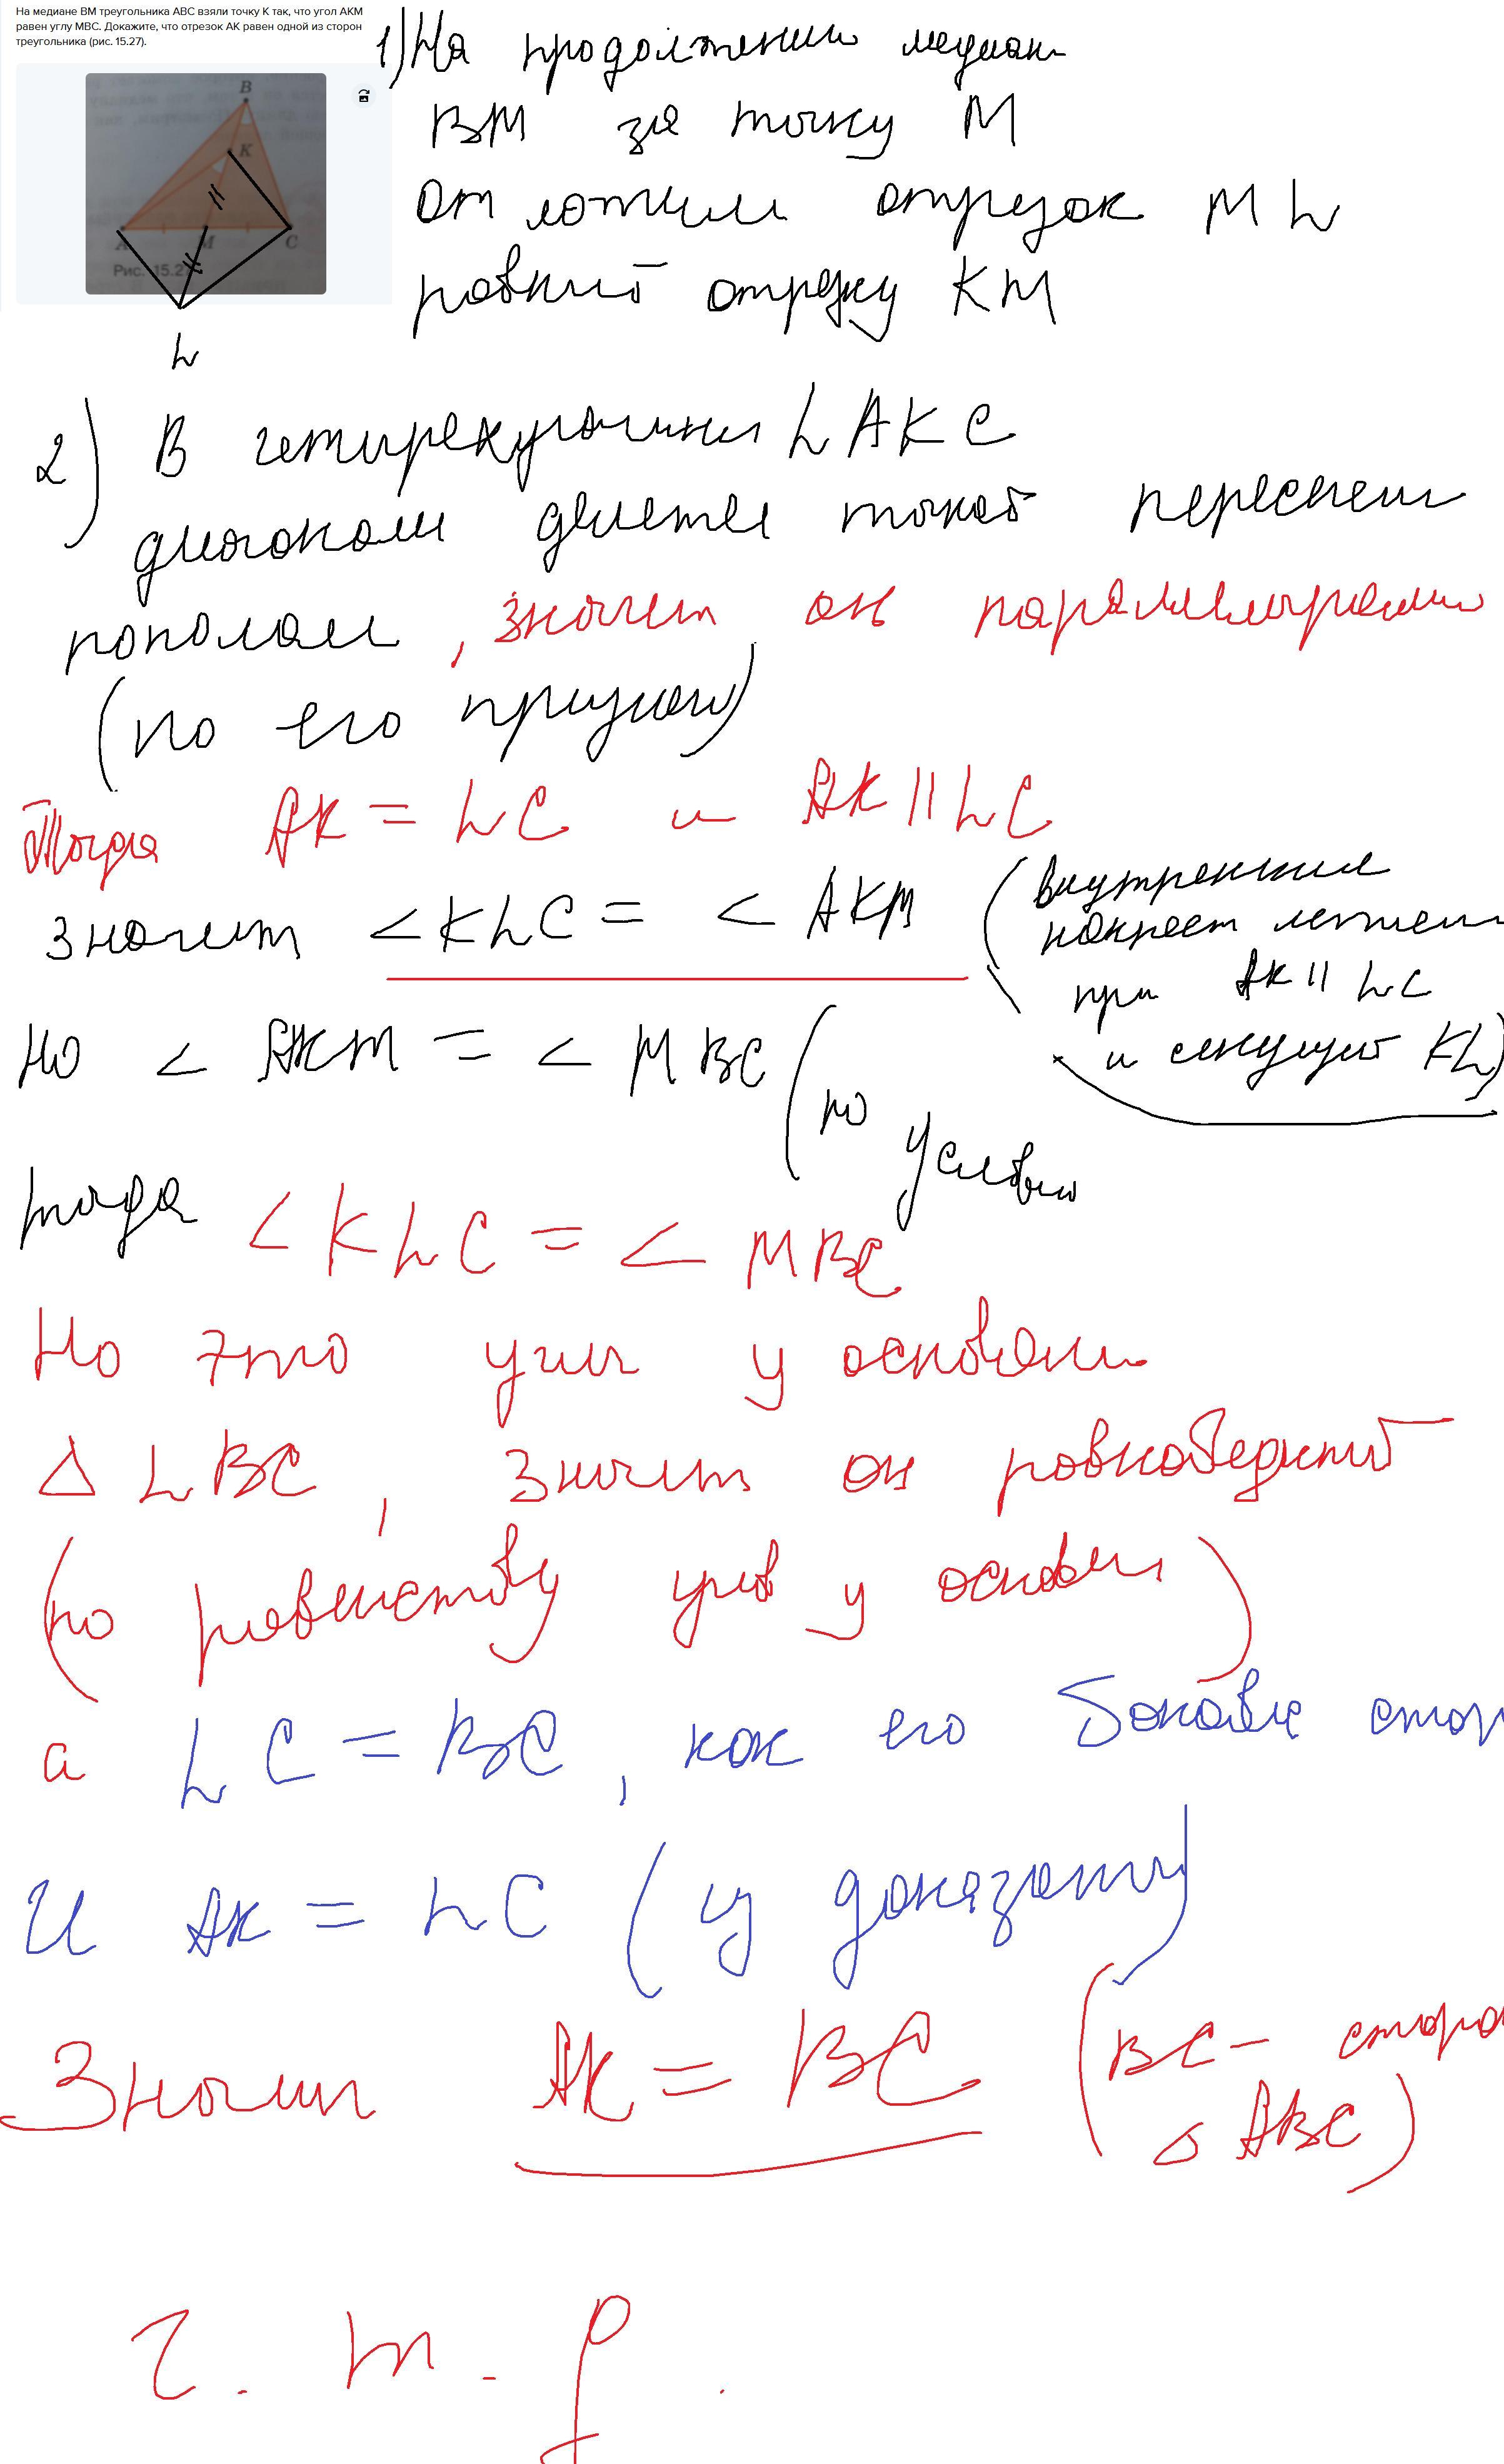 На медиане BM треугольника ABC взяли точку K так, что угол AKM
равен углу MBC. Докажите, что отрезок AK равен одной из сторон
треугольника (рис. 15.27).
B
K
A
M
C
Рис. 15.2
L
1) На продолжении медианы
BM за точку M
отложим отрезок ML
равный отрезку KM
2) В четырехугольнике LAKC
диагонали делятся точкой пересечения
пополам, значит он параллелограмм
(по его признаку)
Тогда AK = LC и AK || LC
Значит <KLC = <AKM
(внутренние
накрест лежащие
при AK || LC
и секущей KL)
Но < AKM = < MBC (по
условию
тогда <KLC = < MBC
Но это углы у основания
Δ LBC, значит он равнобедренный
(по равенству углов у основания)
а LC = BC, как его боковые стор
И AK = LC (из доказанного)
Значит AK = BC
(BC - сторо
Δ ABC)
Ч. т. д.